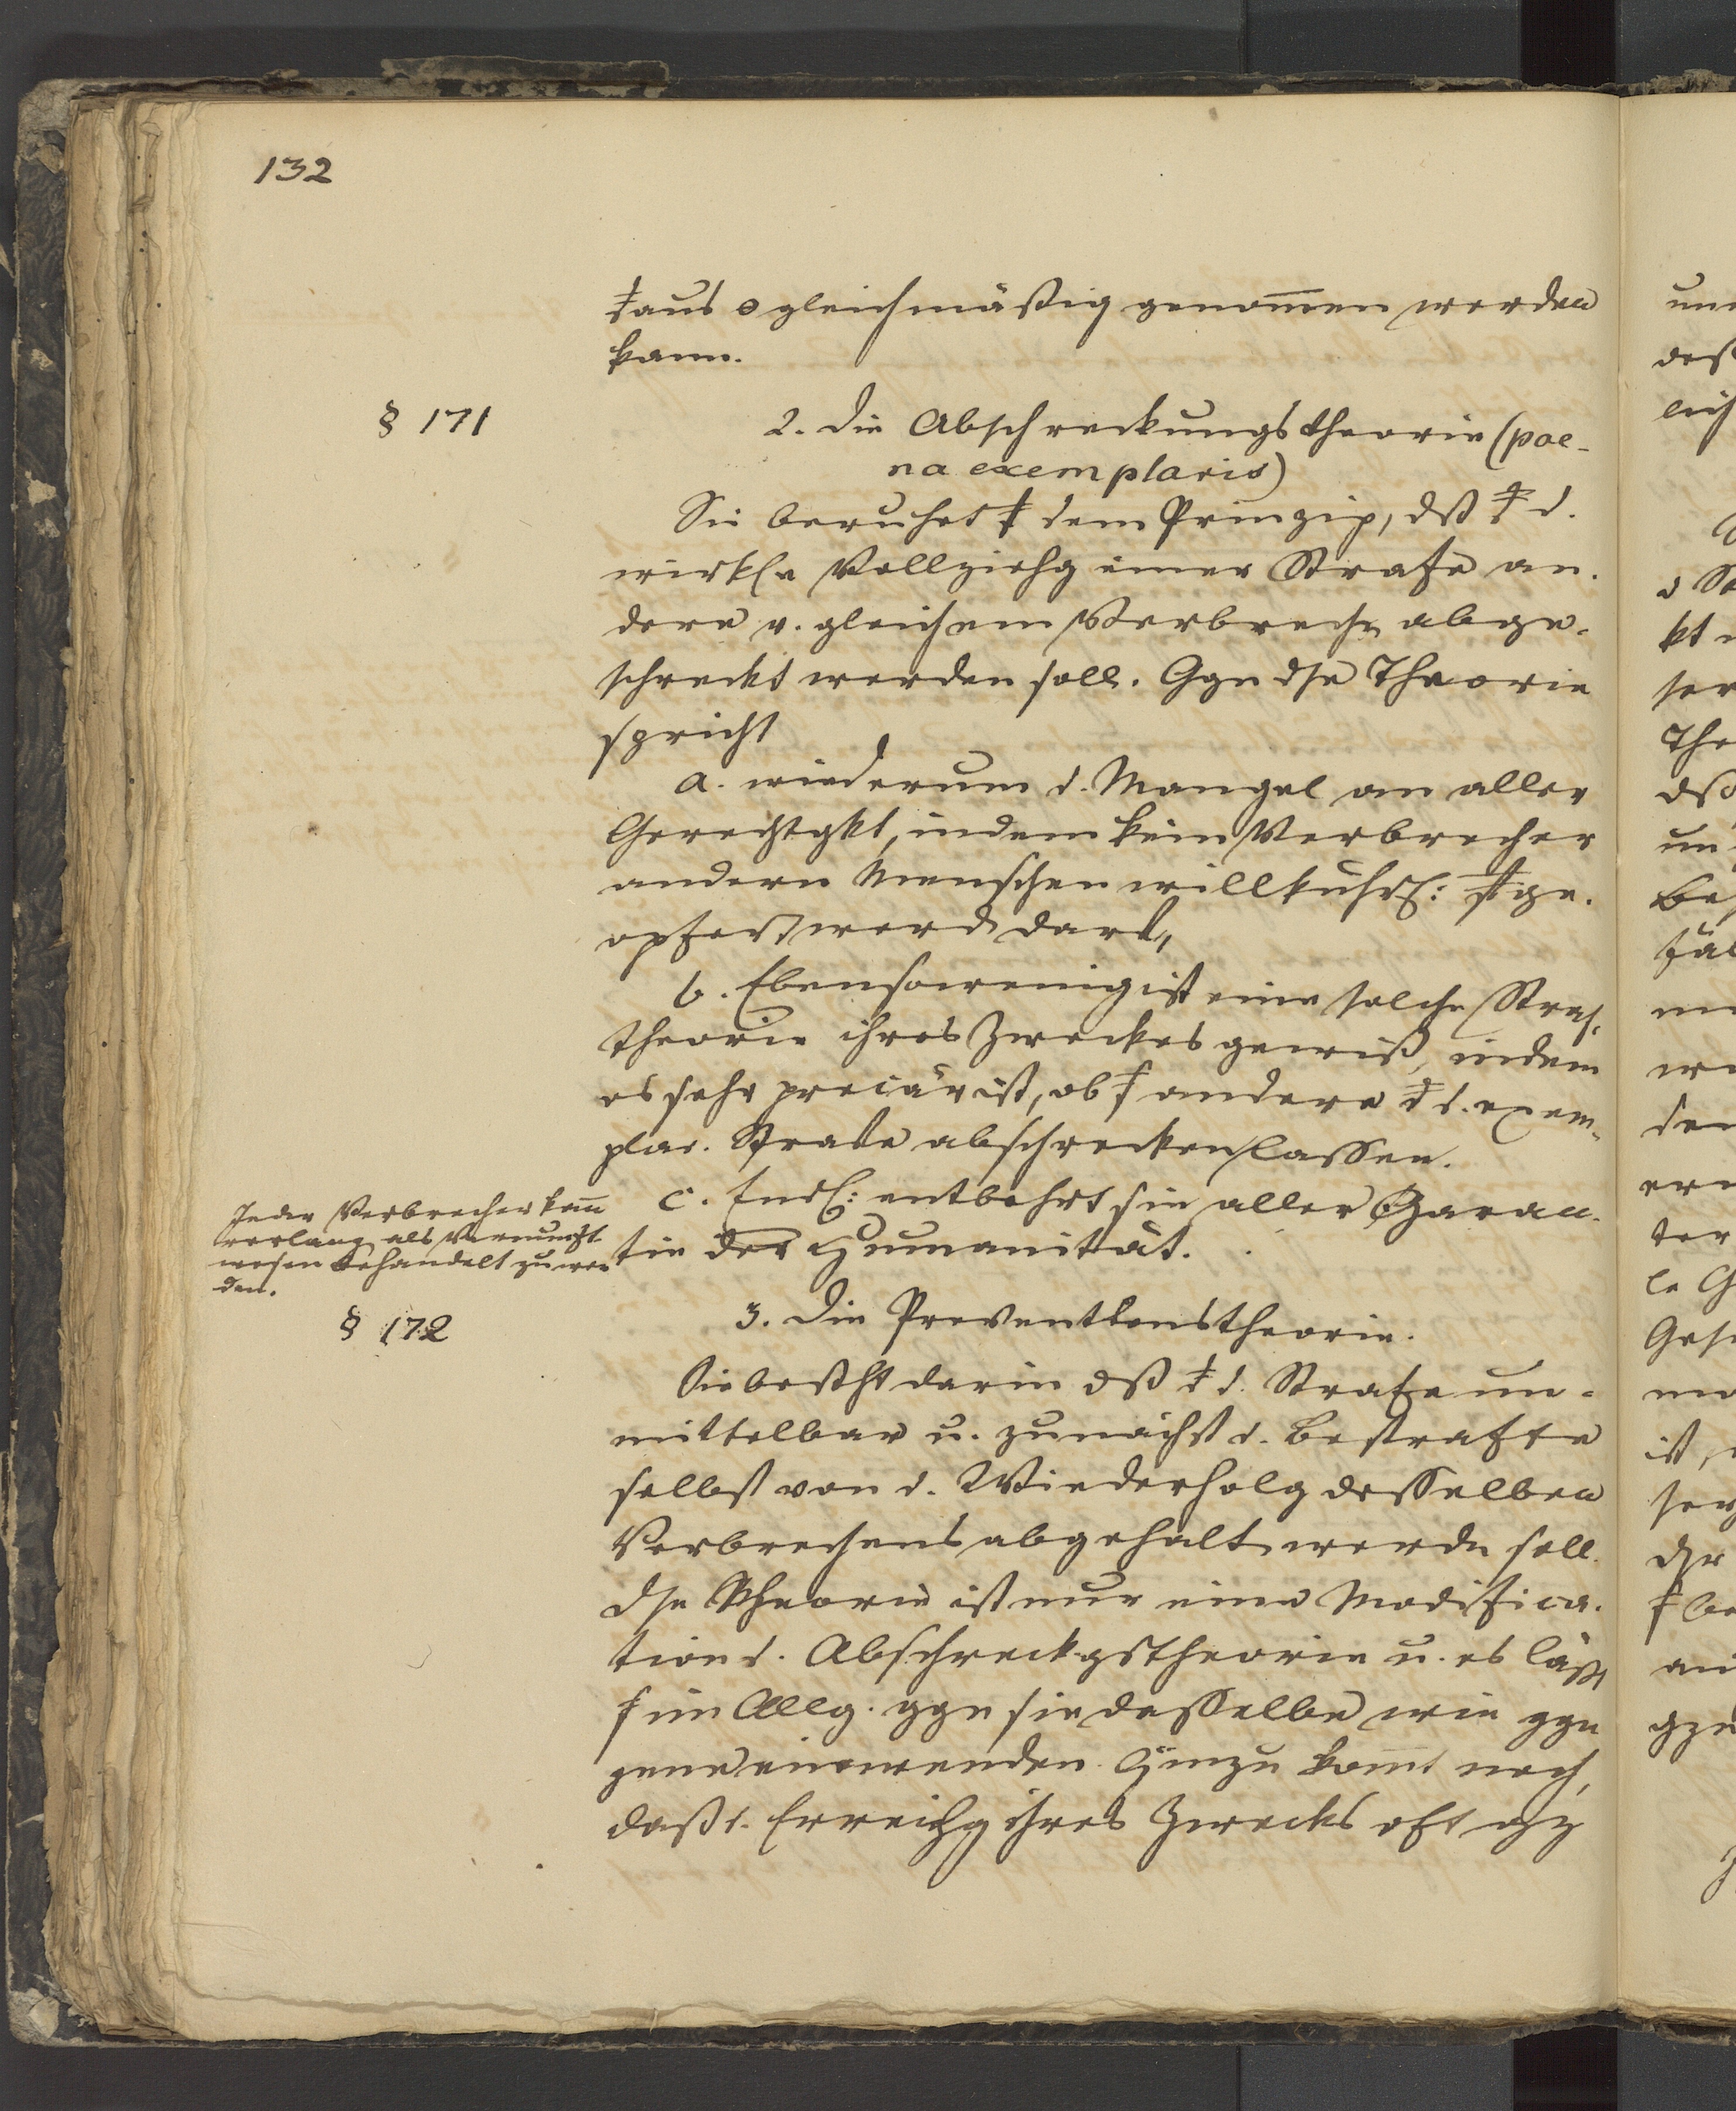 132
daraus o gleichmäßig genom̄en werden
kann.
§ 171
2. Die Abschreckungstheorie (poe-
na exemplaris)
Sie beruhet dem Prinzip, dß d.
wirkl. Vollziehg einer Strafe an-
dere v. gleichem Verbrechn abge-
schreckt werden soll. Ggn dse Theorie
spricht
a. wiederum d. Mangel an aller
Gerechtgkt, indem kein Verbrecher
andern Menschen willkührl: ge-
opfert werdn darf,
b. Ebensowenig ist eine solche Straf-
theorie ihres Zweckes gewiß, indem
es sehr precär ist, ob andere d. exem-
plar. Strafe abschrecken lassen.
c. Endl: entbehrt sie aller Garan-
tie der Humanität.
Jeder Verbrecher kan̄
verlang als Vernunft-
wesen behandelt zu wer
den.
§ 172
3. Die Preventionstheorie.
Sie besteht darin dß d. Strafe un-
mittelbar u. zunächst d. Bestrafte
selbst von d. Wiederholg desselben
Verbrechens abgehalt werdn soll.
Dse Theorie ist nur eine Modifica-
tion d. Abschreckgstheorie u. es läßt
im Allg. ggn sie dasselbe wie ggn
jene einwenden. Hinzu kom̄t noch,
daß d. Erreichg ihres Zwecks oft